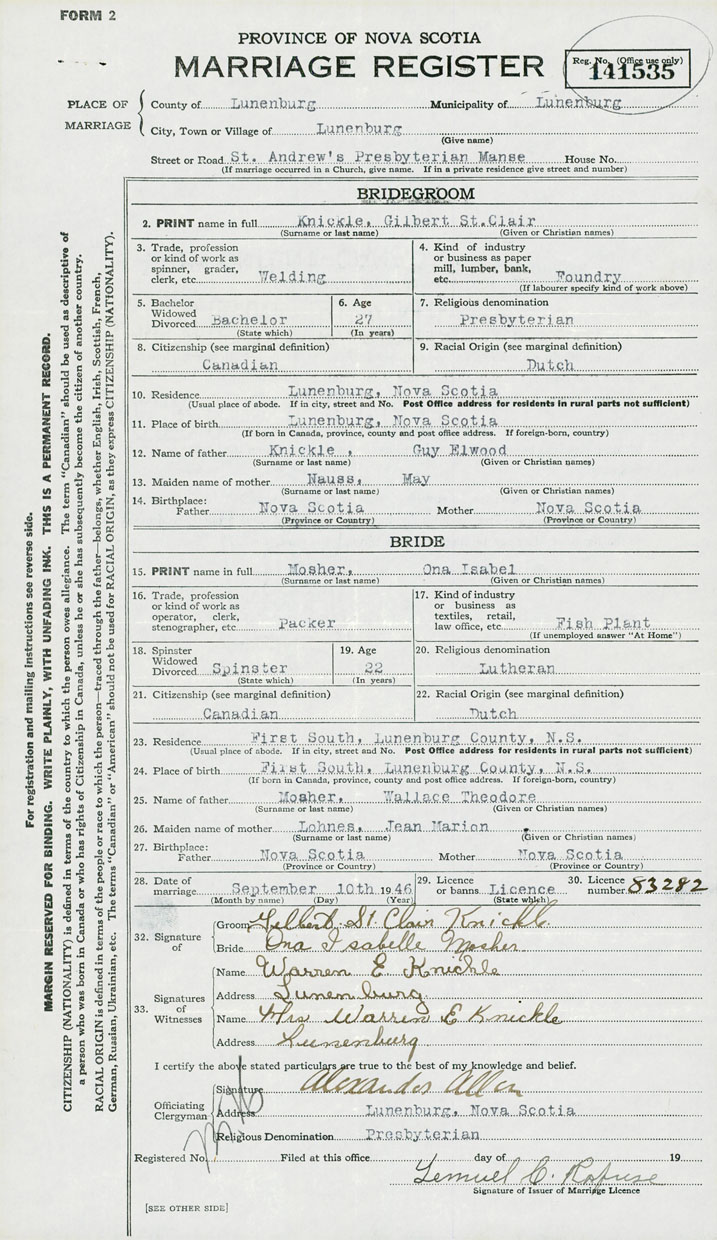 FORM 2
PROVINCE OF NOVA SCOTIA
MARRIAGE REGISTER
Reg. No. (Office use only)
141535
PLACE OF MARRIAGE
County of Lunenburg Municipality of Lunenburg
City, Town or Village of Lunenburg
(Give name)
Street or Road St. Andrew's Presbyterian Manse House No.
(If marriage occurred in a Church, give name. If in a private residence give street and number)
BRIDEGROOM
2. PRINT name in full Knickle, Gilbert St.Clair
(Surname or last name) (Given or Christian names)
3. Trade, profession
or kind of work as
spinner, grader,
clerk, etc. Welding
4. Kind of industry
or business as paper
mill, lumber, bank,
etc. Foundry
(If labourer specify kind of work above)
5. Bachelor
Widowed
Divorced Bachelor
(State which)
6. Age
27
(In years)
7. Religious denomination
Presbyterian
8. Citizenship (see marginal definition)
Canadian
9. Racial Origin (see marginal definition)
Dutch
10. Residence Lunenburg, Nova Scotia
(Usual place of abode. If in city, street and No. Post Office address for residents in rural parts not sufficient)
11. Place of birth Lunenburg, Nova Scotia
(If born in Canada, province, county and post office address. If foreign-born, country)
12. Name of father Knickle , Guy Elwood
(Surname or last name) (Given or Christian names)
13. Maiden name of mother Nauss, May
(Surname or last name) (Given or Christian names)
14. Birthplace:
Father Nova Scotia Mother Nova Scotia
(Province or Country) (Province or Country)
BRIDE
15. PRINT name in full Mosher, Ona Isabel
(Surname or last name) (Given or Christian names)
16. Trade, profession
or kind of work as
operator, clerk,
stenographer, etc Packer
17. Kind of industry
or business as
textiles, retail,
law office, etc. Fish Plant
(If unemployed answer "At Home")
18. Spinster
Widowed
Divorced Spinster
(State which)
19. Age
22
(In years)
20. Religious denomination
Lutheran
21. Citizenship (see marginal definition)
Canadian
22. Racial Origin (see marginal definition)
Dutch
23. Residence First South, Lunenburg County, N.S.
(Usual place of abode. If in city, street and No. Post Office address for residents in rural parts not sufficient)
24. Place of birth First South, Lunenburg County, N.S.
(If born in Canada, province, county and post office address. If foreign-born, country)
25. Name of father Mosher, Wallace Theodore
(Surname or last name) (Given or Christian names)
26. Maiden name of mother Lohnes, Jean Marion
(Surname or last name) (Given or Christian names)
27. Birthplace:
Father Nova Scotia Mother Nova Scotia
(Province or Country) (Province or Country)
28. Date of
marriage September 10th 1946
(Month by name) (Day) (Year)
29. Licence
or banns Licence
(State which)
30. Licence
number 83282
32. Signature
of
Groom Gilbert St Clair Knickle
Bride Ona Isabelle Mosher
33. Signatures of
Witnesses
Name Warren E Knickle
Address Lunenburg
Name Mrs Warren E Knickle
Address Lunenburg
I certify the above stated particulars are true to the best of my knowledge and belief.
Officiating
Clergyman
Signature Alexander Allen
Address Lunenburg, Nova Scotia
Religious Denomination Presbyterian
Registered No. Filed at this office day of 19
Lemuel C. Rafuse
Signature of Issuer of Marriage Licence
[SEE OTHER SIDE]
For registration and mailing instructions see reverse side.
MARGIN RESERVED FOR BINDING. WRITE PLAINLY, WITH UNFADING INK. THIS IS A PERMANENT RECORD.
CITIZENSHIP (NATIONALITY) is defined in terms of the country to which the person owes allegiance. The term "Canadian" should be used as descriptive of
a person who was born in Canada or who has rights of Citizenship in Canada, unless he or she has subsequently become the citizen of another country.
RACIAL ORIGIN is defined in terms of the people or race to which the person—traced through the father—belongs, whether English, Irish, Scottish, French,
German, Russian, Ukrainian, etc. The terms "Canadian" or "American" should not be used for RACIAL ORIGIN, as they express CITIZENSHIP (NATIONALITY).